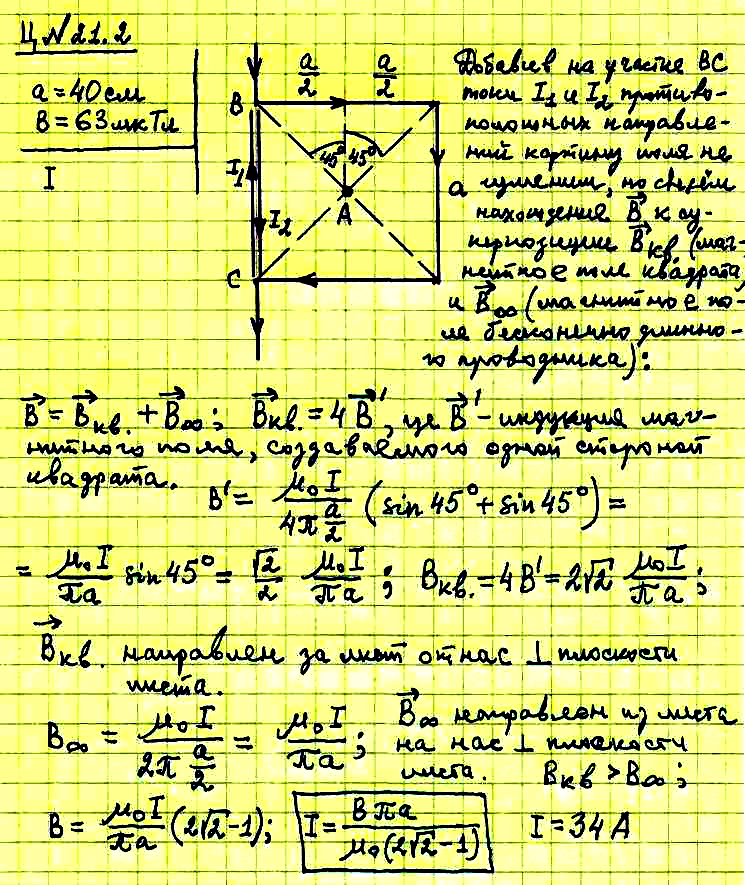 Ц № 21.2
a = 40 см
B = 63 мкТл
I
a/2 a/2
B
45° 45°
I₁
A
I₂
C
a
Добавив на участке BC
токи I₁ и I₂ противо-
положных направле-
ний картину поля не
изменим, но сведём
нахождение B⃗ к су-
перпозиции B⃗кв. (маг-
нитное поле квадрата)
и B⃗∞ (магнитное по-
ле бесконечно длинно-
го проводника):
B⃗ = B⃗кв. + B⃗∞; B⃗кв. = 4B⃗', где B⃗' - индукция маг-
нитного поля, создаваемого одной стороной
квадрата.
B' = μ₀I / (4π a/2) (sin 45° + sin 45°) =
= μ₀I/πa sin 45° = √2/2 μ₀I/πa; Bкв. = 4B' = 2√2 μ₀I/πa;
B⃗кв. направлен за лист от нас ⊥ плоскости
листа.
B∞ = μ₀I / (2π a/2) = μ₀I/πa;
B⃗∞ направлен из листа
на нас ⊥ плоскости
листа. Bкв > B∞;
B = μ₀I/πa (2√2-1); I = Bπa / μ₀(2√2-1) I = 34 A